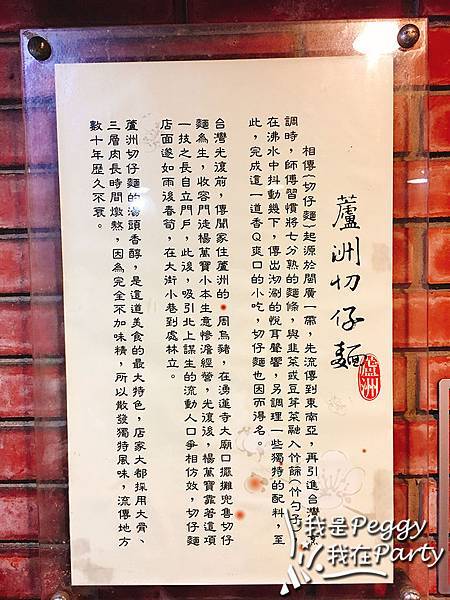 蘆洲切仔麵
蘆洲
相傳(切仔麵)起源於閩廣一帶，先流傳到東南亞，再引進台灣，煮
調時，師傅習慣將七分熟的麵條，與韭菜或豆芽菜融入竹篩(竹勺子)
在沸水中抖動幾下，傳出沏涮的悅耳聲響，另調理一些獨特的配料，至
此，完成這一道香Q爽口的小吃，切仔麵也因而得名。
台灣光復前，傳聞家住蘆洲的 周烏豬，在湧蓮寺大廟口擺攤兜售切仔
麵為生，收容門徒楊萬寶小本生意慘澹經營，光復後，楊萬寶靠著這項
一技之長自立門戶，此後，吸引北上謀生的流動人口爭相仿效，切仔麵
店面遂如雨後春筍，在大街小巷到處林立。
蘆洲切仔麵的湯頭香醇，是這道美食的最大特色，店家大都採用大骨、
三層肉長時間燉熬，因為完全不加味精，所以散發獨特風味，流傳地方
數十年歷久不衰。
我是Peggy
我在Party